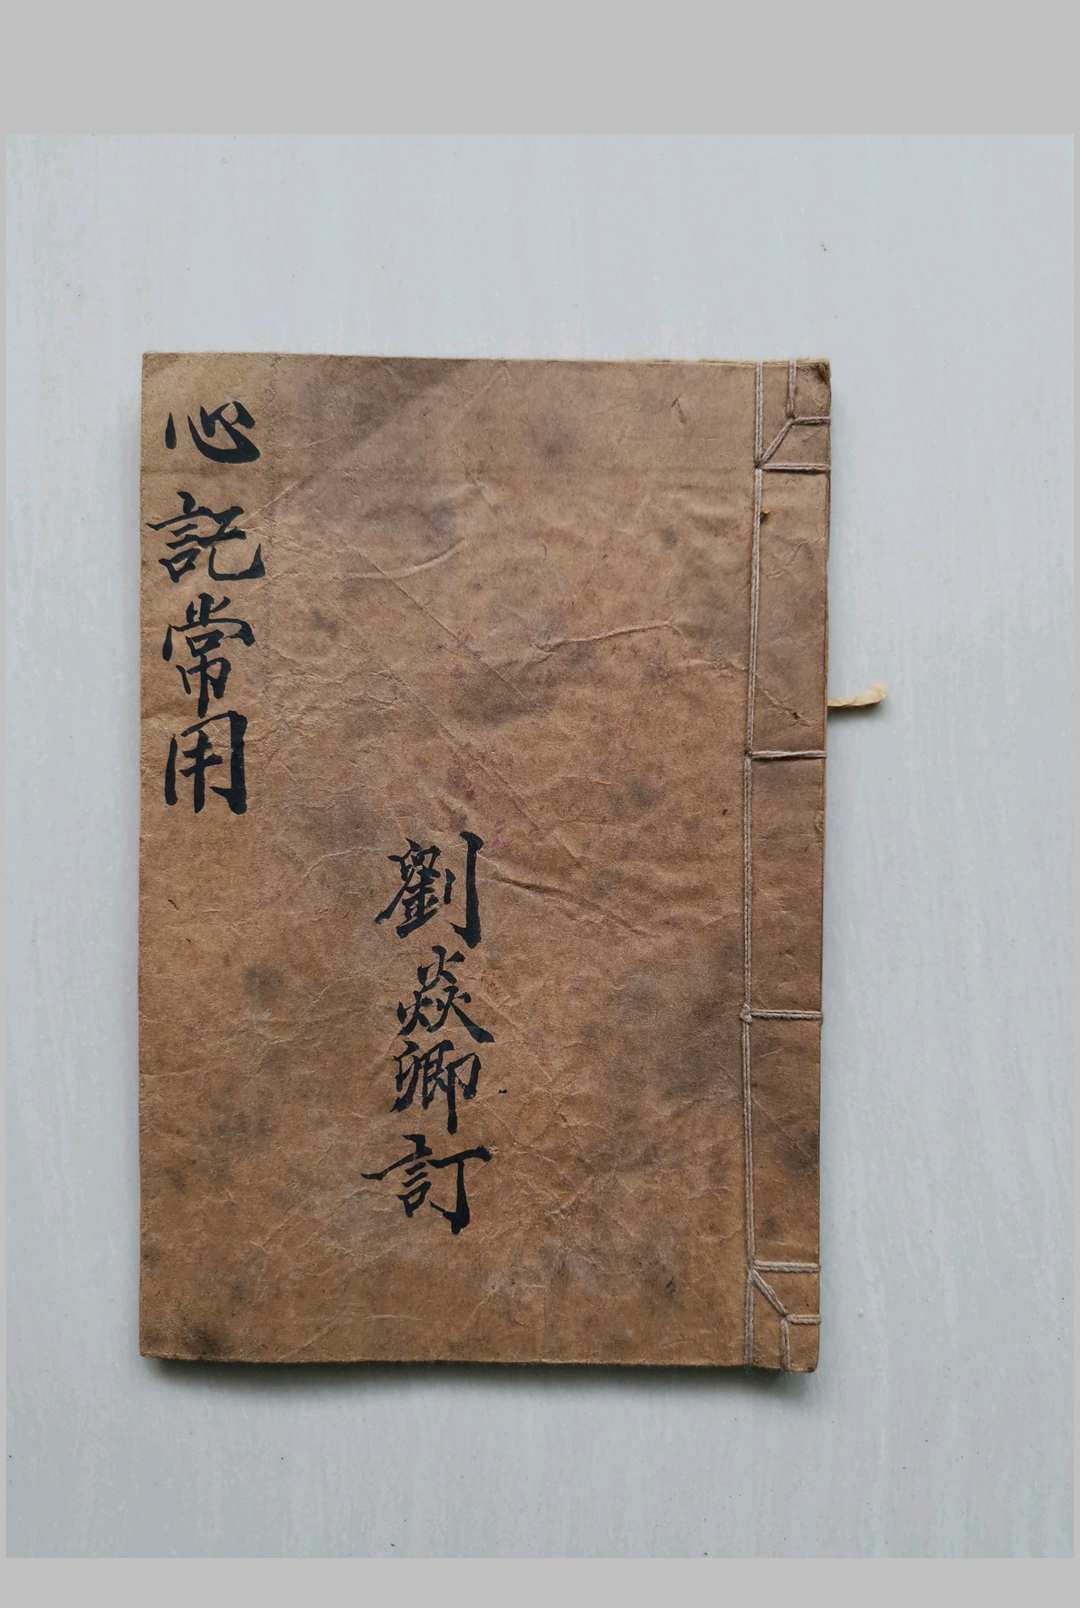 心記常用
劉焱卿訂